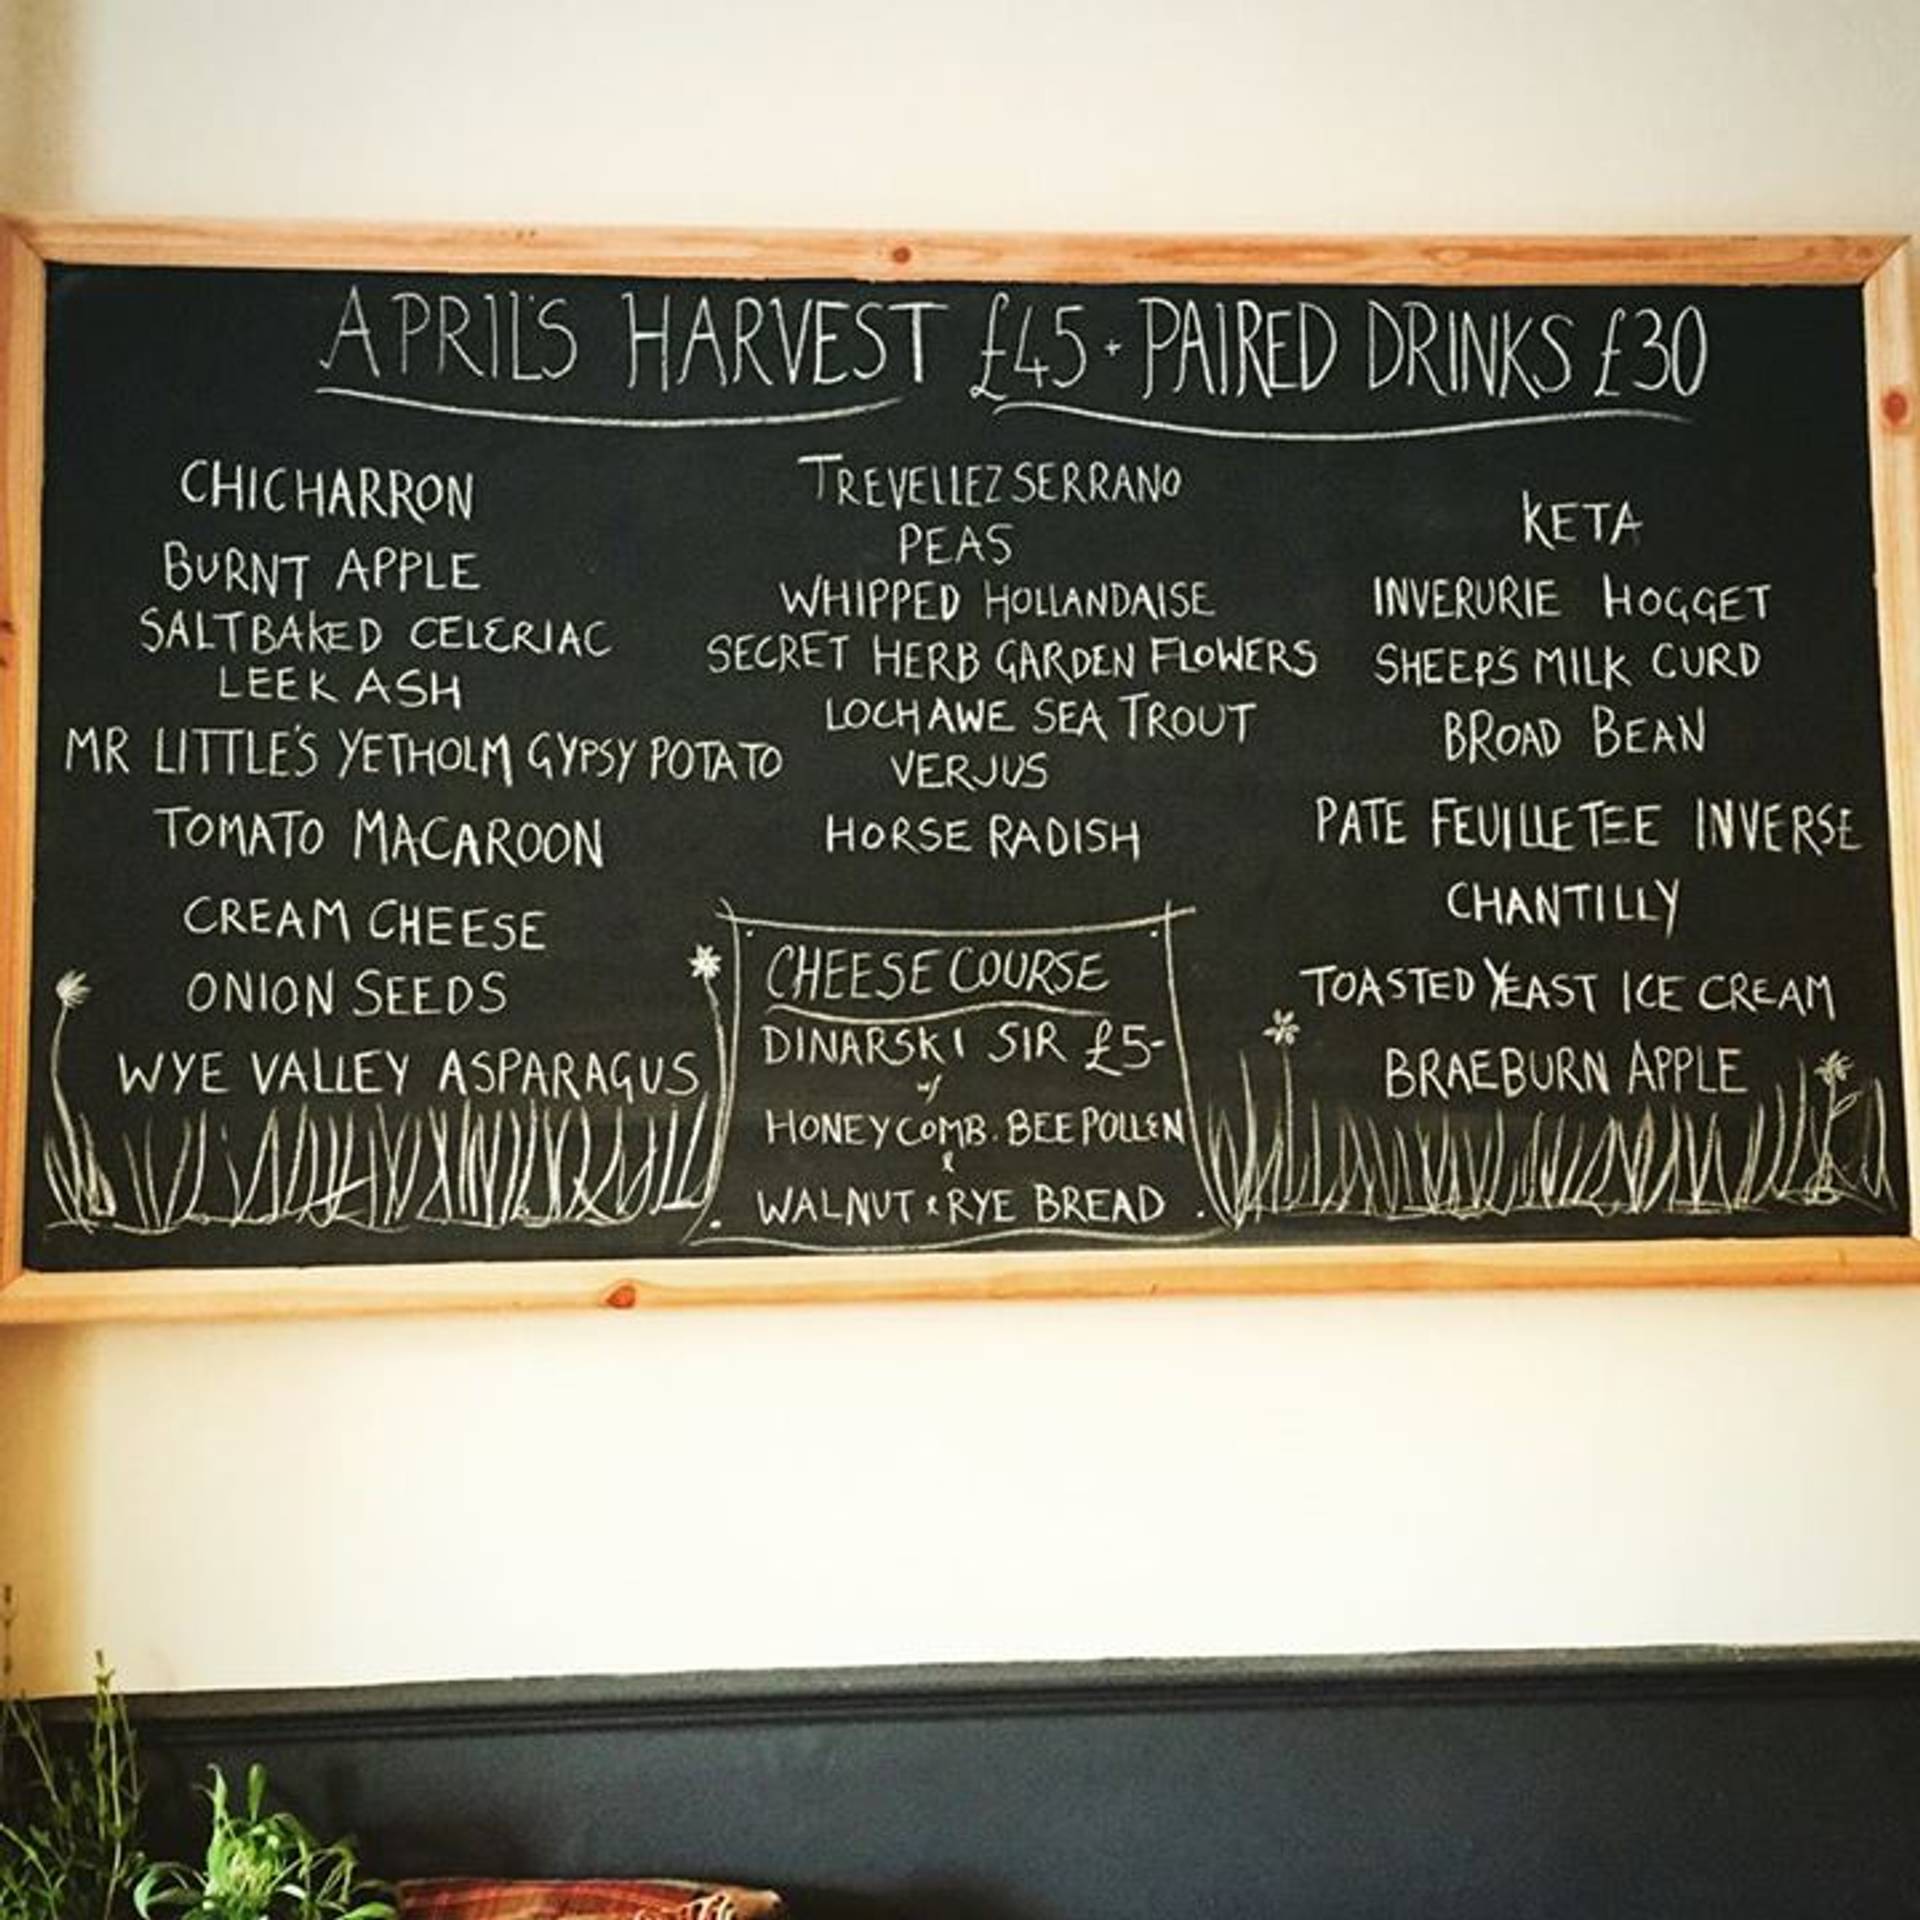 APRIL'S HARVEST £45 + PAIRED DRINKS £30
CHICHARRON
BURNT APPLE
SALTBAKED CELERIAC
LEEK ASH
MR LITTLE'S YETHOLM GYPSY POTATO
TOMATO MACAROON
CREAM CHEESE
ONION SEEDS
WYE VALLEY ASPARAGUS
TREVELLEZ SERRANO
PEAS
WHIPPED HOLLANDAISE
SECRET HERB GARDEN FLOWERS
LOCH AWE SEA TROUT
VERJUS
HORSE RADISH
CHEESE COURSE
DINARSKI SIR £5-
w/
HONEYCOMB. BEE POLLEN
&
WALNUT & RYE BREAD
KETA
INVERURIE HOGGET
SHEEP'S MILK CURD
BROAD BEAN
PATE FEUILLETEE INVERSE
CHANTILLY
TOASTED YEAST ICE CREAM
BRAEBURN APPLE